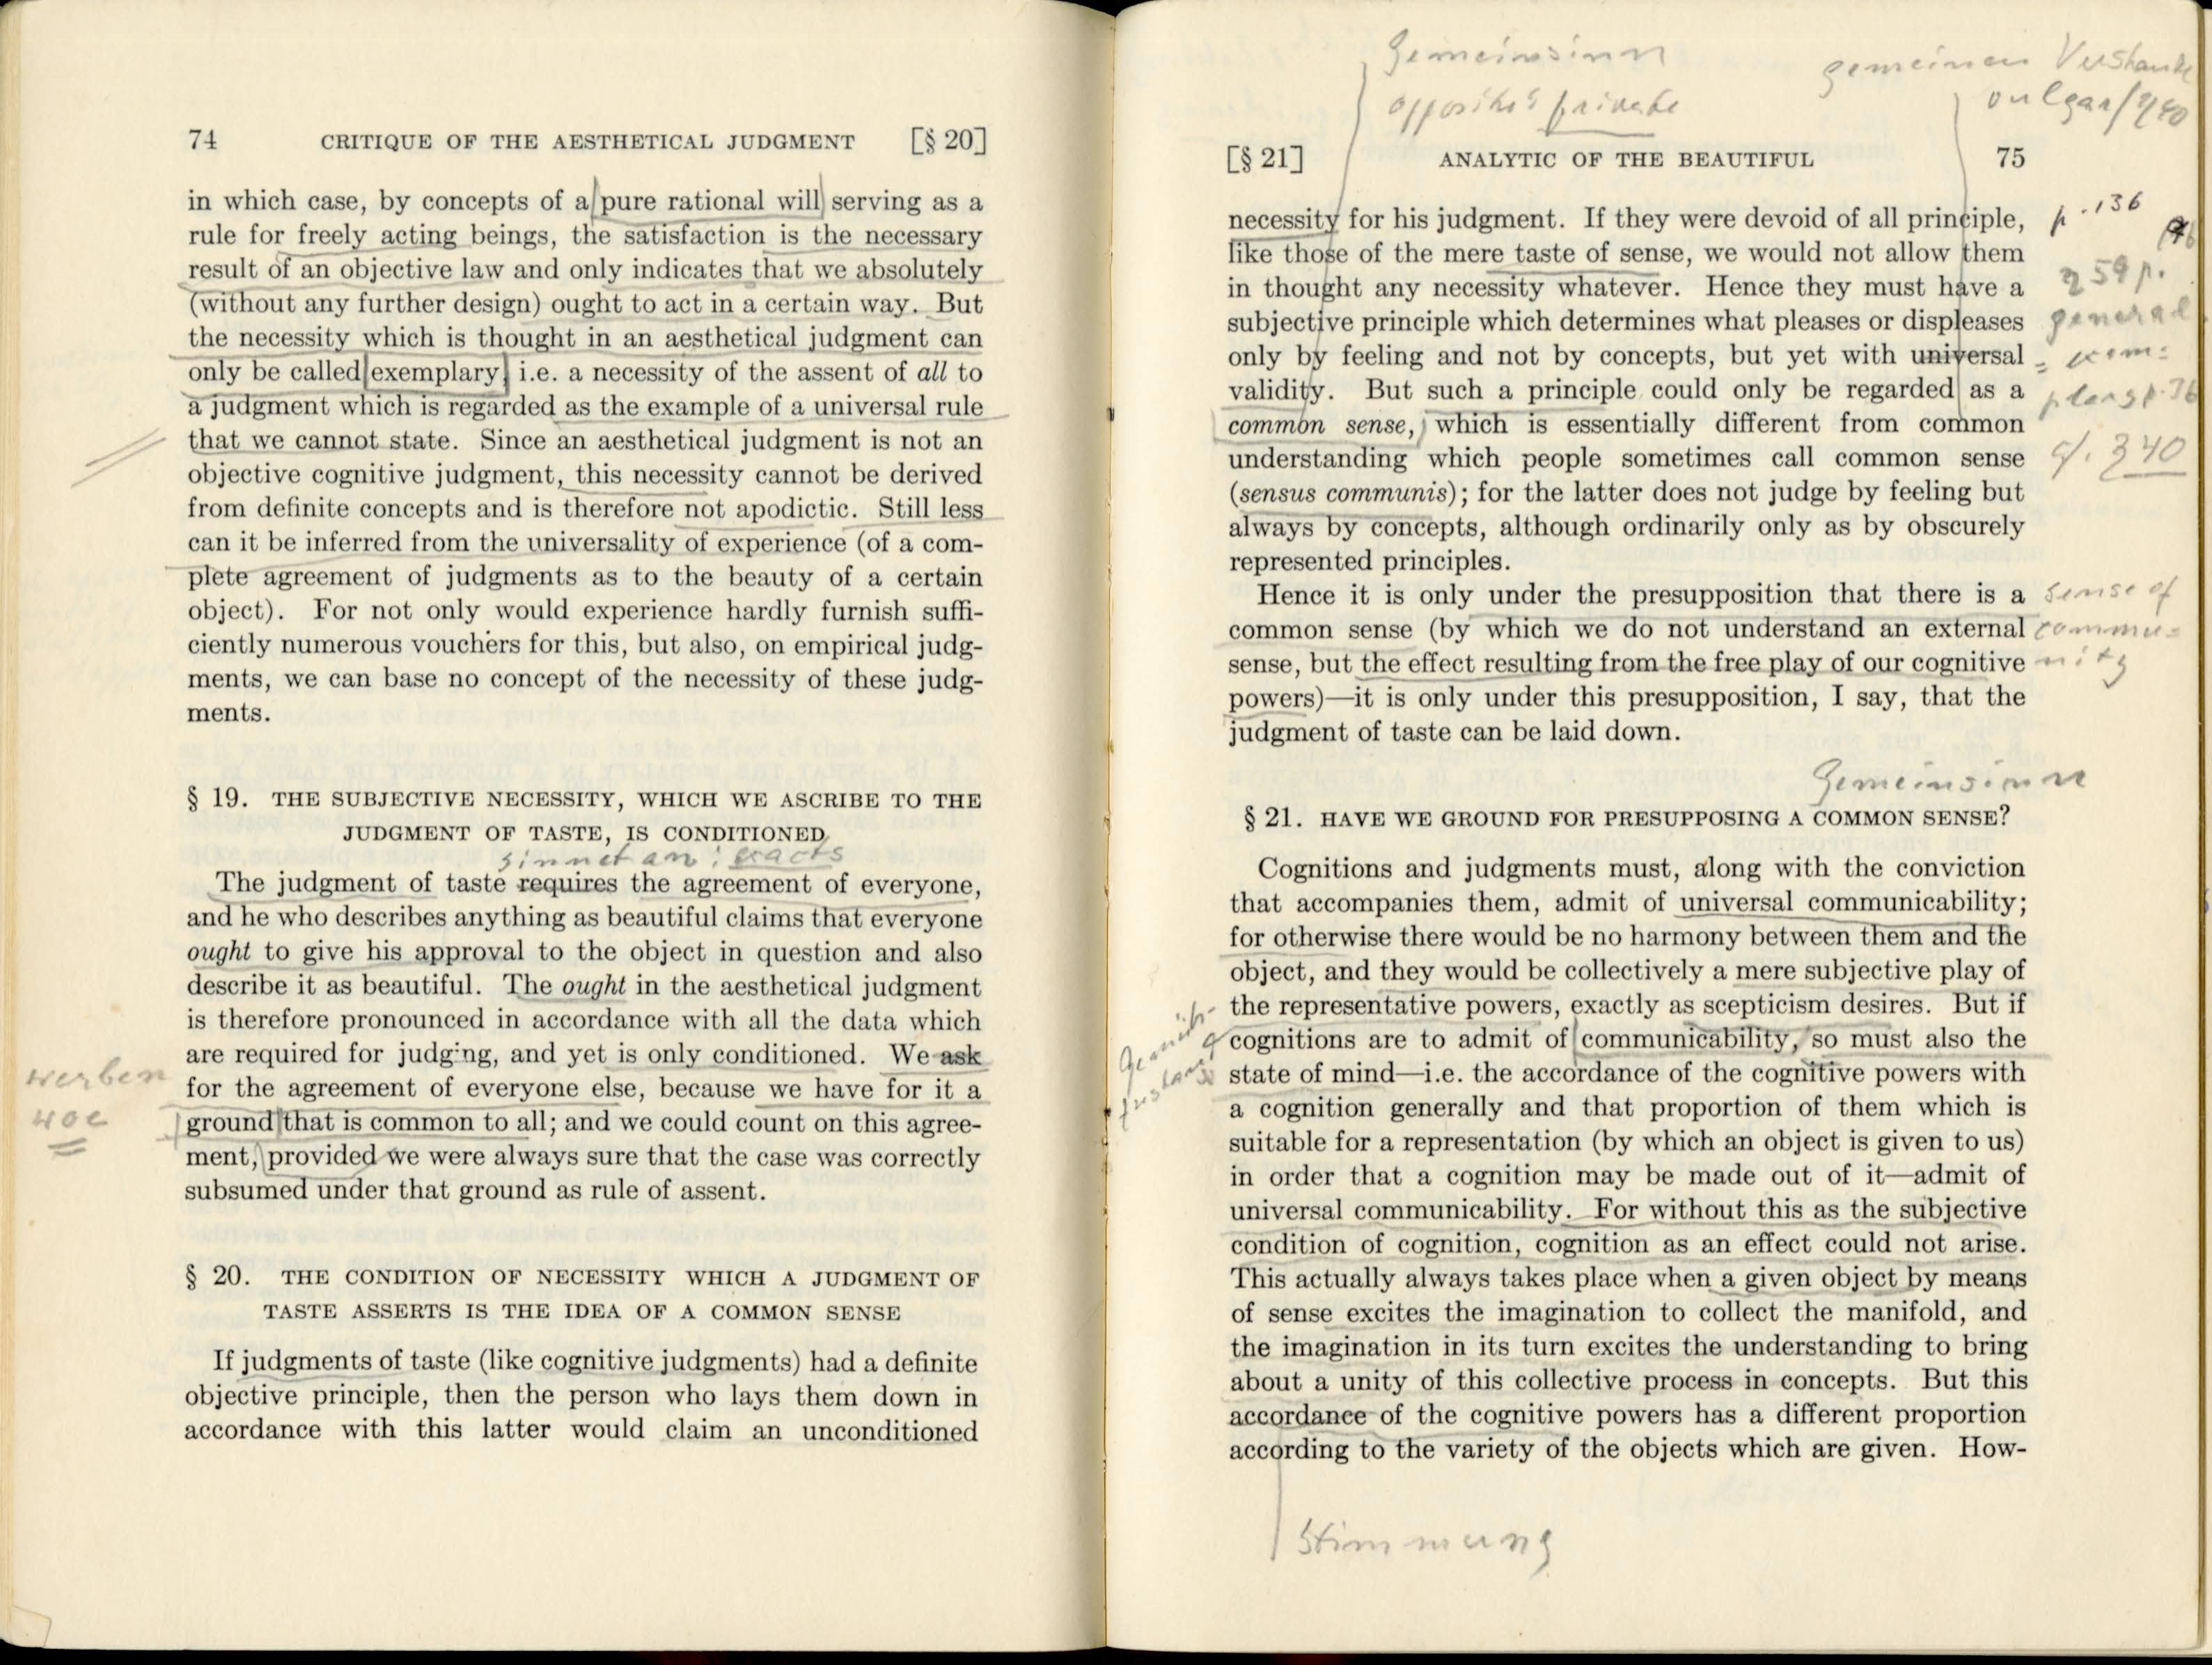 74 CRITIQUE OF THE AESTHETICAL JUDGMENT [§ 20]
in which case, by concepts of a pure rational will serving as a
rule for freely acting beings, the satisfaction is the necessary
result of an objective law and only indicates that we absolutely
(without any further design) ought to act in a certain way. But
the necessity which is thought in an aesthetical judgment can
only be called exemplary, i.e. a necessity of the assent of all to
a judgment which is regarded as the example of a universal rule
that we cannot state. Since an aesthetical judgment is not an
objective cognitive judgment, this necessity cannot be derived
from definite concepts and is therefore not apodictic. Still less
can it be inferred from the universality of experience (of a com-
plete agreement of judgments as to the beauty of a certain
object). For not only would experience hardly furnish suffi-
ciently numerous vouchers for this, but also, on empirical judg-
ments, we can base no concept of the necessity of these judg-
ments.
§ 19. THE SUBJECTIVE NECESSITY, WHICH WE ASCRIBE TO THE
JUDGMENT OF TASTE, IS CONDITIONED
sinnet an: exacts
The judgment of taste requires the agreement of everyone,
and he who describes anything as beautiful claims that everyone
ought to give his approval to the object in question and also
describe it as beautiful. The ought in the aesthetical judgment
is therefore pronounced in accordance with all the data which
are required for judging, and yet is only conditioned. We ask
werben
for the agreement of everyone else, because we have for it a
woe
ground that is common to all; and we could count on this agree-
ment, provided we were always sure that the case was correctly
subsumed under that ground as rule of assent.
§ 20. THE CONDITION OF NECESSITY WHICH A JUDGMENT OF
TASTE ASSERTS IS THE IDEA OF A COMMON SENSE
If judgments of taste (like cognitive judgments) had a definite
objective principle, then the person who lays them down in
accordance with this latter would claim an unconditioned
Gemeinsinn
opposite: private
gemeinen Verstande
vulgar/
[§ 21] ANALYTIC OF THE BEAUTIFUL 75
necessity for his judgment. If they were devoid of all principle,
p. 136
like those of the mere taste of sense, we would not allow them
in thought any necessity whatever. Hence they must have a
59 p.
subjective principle which determines what pleases or displeases
general
only by feeling and not by concepts, but yet with universal
validity. But such a principle could only be regarded as a
common sense, which is essentially different from common
understanding which people sometimes call common sense
cf. § 40
(sensus communis); for the latter does not judge by feeling but
always by concepts, although ordinarily only as by obscurely
represented principles.
Hence it is only under the presupposition that there is a
sense of
common sense (by which we do not understand an external
commu-
sense, but the effect resulting from the free play of our cognitive
nity
powers)—it is only under this presupposition, I say, that the
judgment of taste can be laid down.
Gemeinsinn
§ 21. HAVE WE GROUND FOR PRESUPPOSING A COMMON SENSE?
Cognitions and judgments must, along with the conviction
that accompanies them, admit of universal communicability;
for otherwise there would be no harmony between them and the
object, and they would be collectively a mere subjective play of
the representative powers, exactly as scepticism desires. But if
cognitions are to admit of communicability, so must also the
state of mind—i.e. the accordance of the cognitive powers with
a cognition generally and that proportion of them which is
suitable for a representation (by which an object is given to us)
in order that a cognition may be made out of it—admit of
universal communicability. For without this as the subjective
condition of cognition, cognition as an effect could not arise.
This actually always takes place when a given object by means
of sense excites the imagination to collect the manifold, and
the imagination in its turn excites the understanding to bring
about a unity of this collective process in concepts. But this
accordance of the cognitive powers has a different proportion
according to the variety of the objects which are given. How-
Stimmung